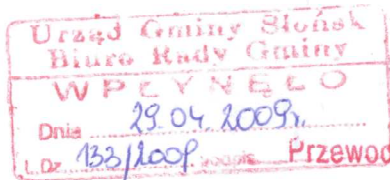 Urząd Gminy Słońsk
Biuro Rady Gminy
WPŁYNĘŁO
Dnia 29.04.2009r.
L.Dz. 133/2009 podpis
Przewod